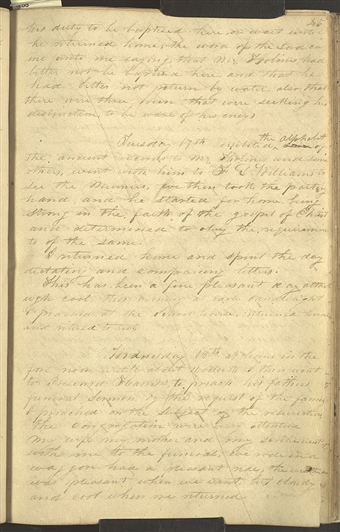 his duty to be baptised here or wait until
he returned home; the word of the Lord came
me unto me saying that Mr Holmes had
better not be baptised here and that he
had better not return by water also that
there were three men that were seeking his
distruction, to be ware of his enemys
Tuesday 17th exhibited the alphabet of
the ancient records to Mr Holmes and some
others, went with him to F G Williams to
see the Mummies, we then took the parting
hand and he started for home being
strong in the faith of the gospel of Christ
and determined to obey the requirements
of the same.
I returned home and spent the day
dictating and comparing letters.
This has been a fine pleasant day although
cool this evening at early candlelight
I preached at the School house, returned home
and retired to rest
Wednesday 18th at home in the
fore noon until about 11 oclock I then went
to preach his fathers
funeral sermon by the request of the family
I preached on the subject of the resurrection
the congregation were very attentive
My wife my mother and my
went with me to the funeral, we rode in a
waggon had a pleasant ride, the weather
was pleasant when we went but cloudy
and cool when we returned